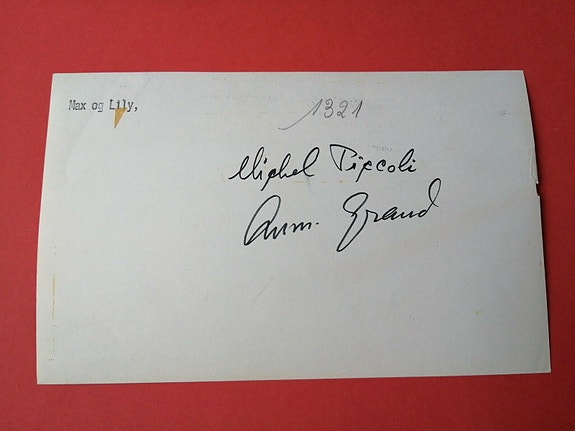 Max og Lily,
1321
Michel Piccoli
Ann. Grand